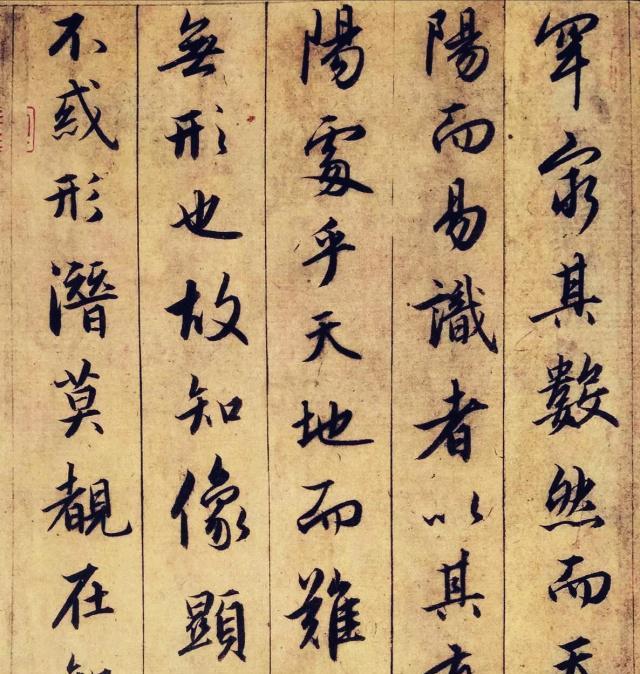 罕窮其數然而天
陽而易識者以其
陽處乎天地而難
無形也故知像顯
不惑形潛莫覩在